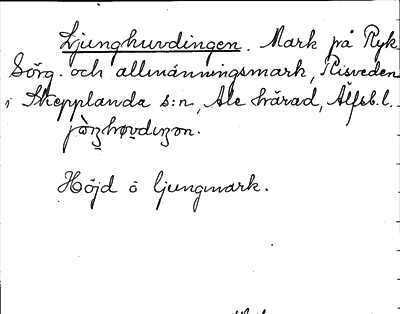 Ljunghuvdingen. Mark på Ryk
Sörg. och allmänningsmark, Risveden
i Skepplanda s:n, Ale härad, Älfsb.l.
Höjd å ljungmark.